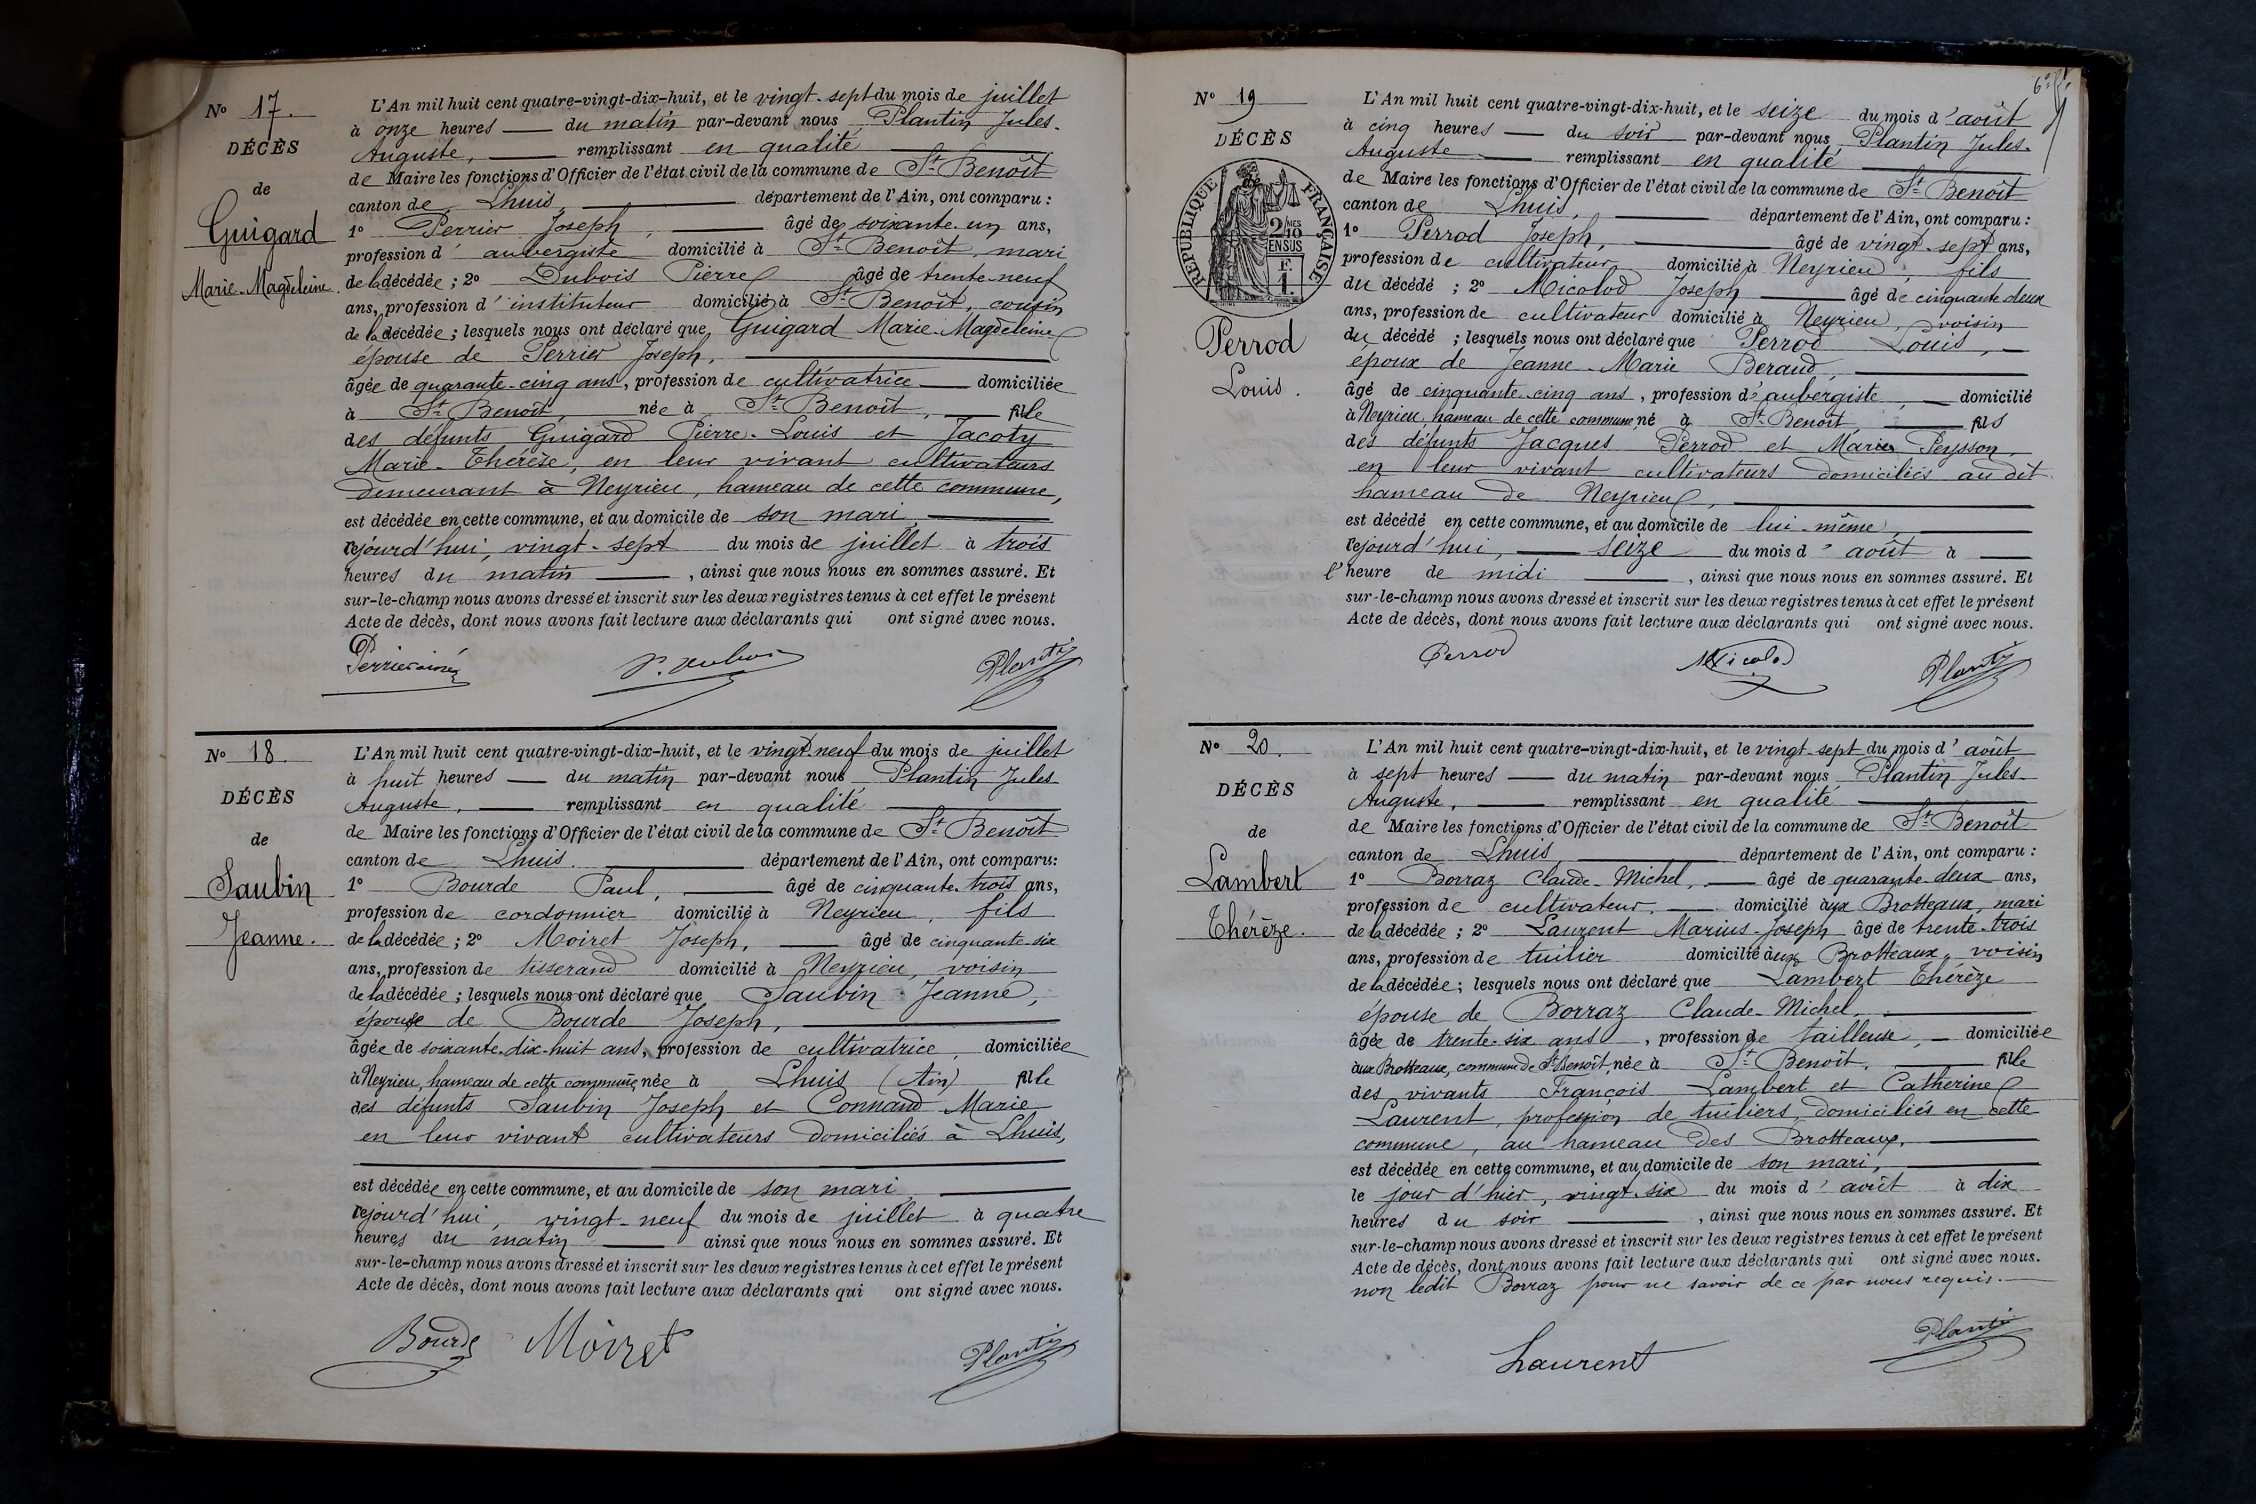 Nº 17.
DÉCÈS
de
Guigard
Marie-Magdeleine.
L'An mil huit cent quatre-vingt-dix-huit, et le vingt-sept du mois de juillet
à onze heures du matin par-devant nous Plantin Jules-
Auguste, remplissant en qualité
de Maire les fonctions d'Officier de l'état civil de la commune de St Benoît
canton de Lhuis, département de l'Ain, ont comparu :
1º Perrier Joseph, âgé de soixante-un ans,
profession d'aubergiste domicilié à St Benoît, mari
de la décédée ; 2º Dubois Pierre âgé de trente-neuf
ans, profession d'instituteur domicilié à St Benoît, cousin
de la décédée ; lesquels nous ont déclaré que Guigard Marie-Magdeleine
épouse de Perrier Joseph,
âgée de quarante-cinq ans, profession de cultivatrice domiciliée
à St Benoît, née à St Benoît, fille
des défunts Guigard Pierre-Louis et Jacoty
Marie-Thérèse, en leur vivant cultivateurs
demeurant à Neyrieu, hameau de cette commune,
est décédée en cette commune, et au domicile de son mari,
cejourd'hui, vingt-sept du mois de juillet à trois
heures du matin, ainsi que nous nous en sommes assuré. Et
sur-le-champ nous avons dressé et inscrit sur les deux registres tenus à cet effet le présent
Acte de décès, dont nous avons fait lecture aux déclarants qui ont signé avec nous.
Perrier aîné P. Dubois Plantin
Nº 18.
DÉCÈS
de
Saubin
Jeanne.
L'An mil huit cent quatre-vingt-dix-huit, et le vingt-neuf du mois de juillet
à huit heures du matin par-devant nous Plantin Jules
Auguste, remplissant en qualité
de Maire les fonctions d'Officier de l'état civil de la commune de St Benoît
canton de Lhuis. département de l'Ain, ont comparu:
1º Bourde Paul, âgé de cinquante-trois ans,
profession de cordonnier domicilié à Neyrieu, fils
de la décédée ; 2º Moiret Joseph, âgé de cinquante-six
ans, profession de tisserand domicilié à Neyrieu, voisin
de la décédée ; lesquels nous ont déclaré que Saubin Jeanne,
épouse de Bourde Joseph,
âgée de soixante-dix-huit ans, profession de cultivatrice, domiciliée
à Neyrieu, hameau de cette commune, née à Lhuis (Ain) fille
des défunts Saubin Joseph et Connand Marie
en leur vivant cultivateurs domiciliés à Lhuis,
est décédée en cette commune, et au domicile de son mari,
cejourd'hui, vingt-neuf du mois de juillet à quatre
heures du matin ainsi que nous nous en sommes assuré. Et
sur-le-champ nous avons dressé et inscrit sur les deux registres tenus à cet effet le présent
Acte de décès, dont nous avons fait lecture aux déclarants qui ont signé avec nous.
Bourde Moiret Plantin
Nº 19
DÉCÈS
de
RÉPUBLIQUE FRANÇAISE
2/10 MES
EN SUS
F.
1.
Perrod
Louis.
L'An mil huit cent quatre-vingt-dix-huit, et le seize du mois d'août
à cinq heures du soir par-devant nous, Plantin Jules-
Auguste remplissant en qualité
de Maire les fonctions d'Officier de l'état civil de la commune de St Benoît
canton de Lhuis, département de l'Ain, ont comparu :
1º Perrod Joseph, âgé de vingt-sept ans,
profession de cultivateur domicilié à Neyrieu, fils
du décédé ; 2º Micolod Joseph âgé de cinquante-deux
ans, profession de cultivateur domicilié à Neyrieu, voisin
du décédé ; lesquels nous ont déclaré que Perrod Louis,
époux de Jeanne-Marie Beraud,
âgé de cinquante-cinq ans, profession d'aubergiste, domicilié
à Neyrieu, hameau de cette commune, né à St Benoît fils
des défunts Jacques Perrod et Marie Peysson,
en leur vivant cultivateurs domiciliés au dit
hameau de Neyrieu,
est décédé en cette commune, et au domicile de lui-même,
cejourd'hui, seize du mois d'août à
l'heure de midi, ainsi que nous nous en sommes assuré. Et
sur-le-champ nous avons dressé et inscrit sur les deux registres tenus à cet effet le présent
Acte de décès, dont nous avons fait lecture aux déclarants qui ont signé avec nous.
Perrod Plantin
Nº 20.
DÉCÈS
de
Lambert
Thérèze.
L'An mil huit cent quatre-vingt-dix-huit, et le vingt-sept du mois d'août
à sept heures du matin par-devant nous Plantin Jules-
Auguste, remplissant en qualité
de Maire les fonctions d'Officier de l'état civil de la commune de St Benoît
canton de Lhuis département de l'Ain, ont comparu :
1º Borraz Claude-Michel, âgé de quarante-deux ans,
profession de cultivateur, domicilié aux Brotteaux, mari
de la décédée ; 2º Laurent Marius-Joseph âgé de trente-trois
ans, profession de tuilier domicilié aux Brotteaux, voisin
de la décédée ; lesquels nous ont déclaré que Lambert Thérèze
épouse de Borraz Claude-Michel,
âgée de trente-six ans, profession de tailleuse, domiciliée
aux Brotteaux, commune de St Benoît, née à St Benoît, fille
des vivants François Lambert et Catherine
Laurent, profession de tuiliers, domiciliés en cette
commune, au hameau des Brotteaux,
est décédée en cette commune, et au domicile de son mari,
le jour d'hier, vingt-six du mois d'août à dix
heures du soir, ainsi que nous nous en sommes assuré. Et
sur-le-champ nous avons dressé et inscrit sur les deux registres tenus à cet effet le présent
Acte de décès, dont nous avons fait lecture aux déclarants qui ont signé avec nous.
non ledit Borraz pour ne savoir de ce par nous requis.
Laurent Plantin